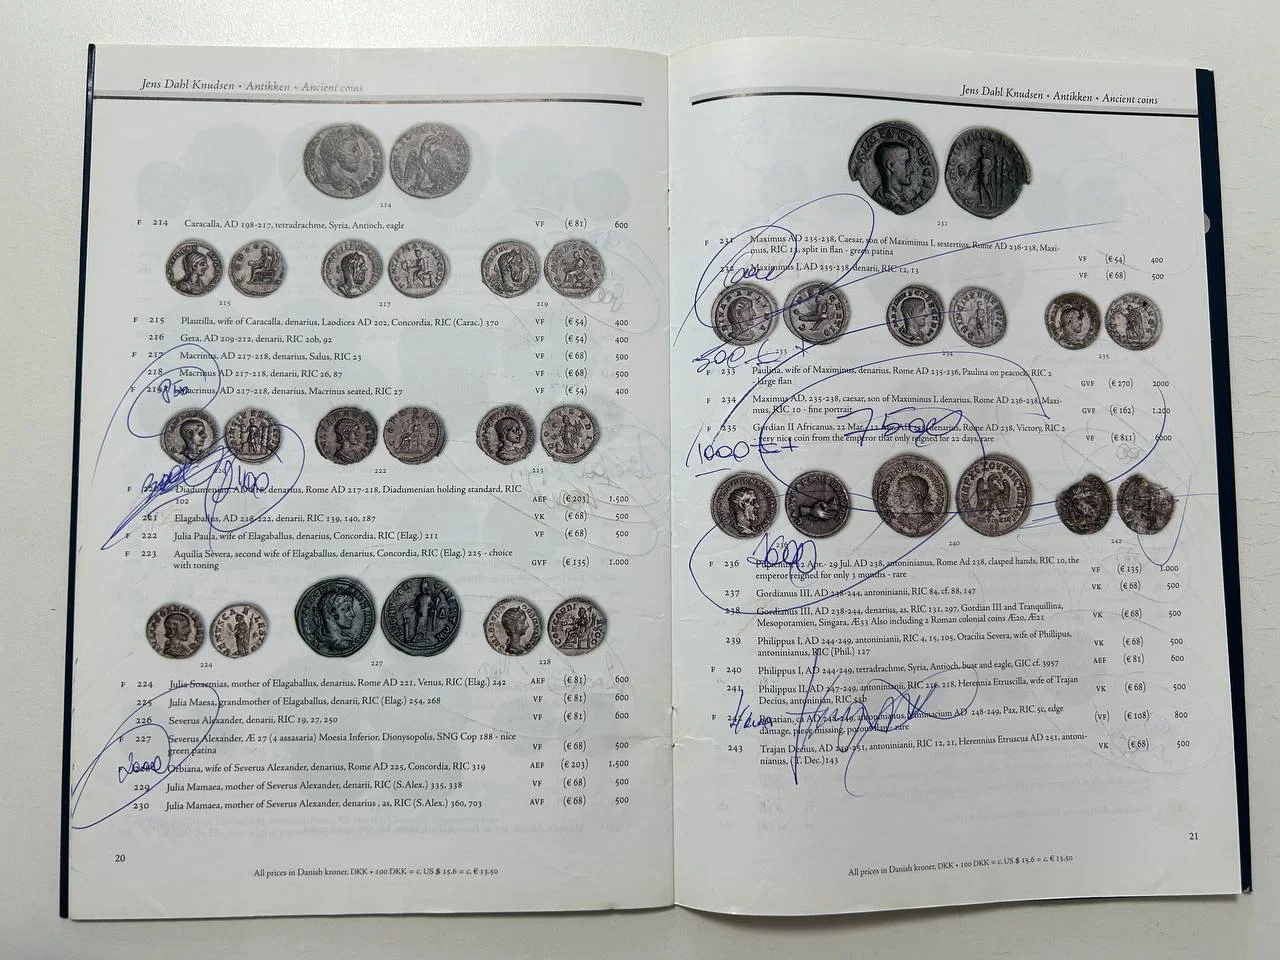 Jens Dahl Knudsen • Antikken • Ancient coins
214
F 214 Caracalla, AD 198-217, tetradrachme, Syria, Antioch, eagle VF (€ 81) 600
215 217 219
F 215 Plautilla, wife of Caracalla, denarius, Laodicea AD 202, Concordia, RIC (Carac.) 370 VF (€ 54) 400
216 Geta, AD 209-212, denarii, RIC 20b, 92 VF (€ 54) 400
F 217 Macrinus, AD 217-218, denarius, Salus, RIC 23 VF (€ 68) 500
218 Macrinus AD 217-218, denarii, RIC 26, 87 VF (€ 68) 500
F 219 Macrinus, AD 217-218, denarius, Macrinus seated, RIC 27 VF (€ 54) 400
850
222 223
2400
F Diadumenian, denarius, Rome AD 217-218, Diadumenian holding standard, RIC
102 AEF (€ 203) 1.500
221 Elagaballus, AD 218-222, denarii, RIC 139, 140, 187 VK (€ 68) 500
F 222 Julia Paula, wife of Elagaballus, denarius, Concordia, RIC (Elag.) 211 VF (€ 68) 500
F 223 Aquilia Severa, second wife of Elagaballus, denarius, Concordia, RIC (Elag.) 225 - choice
with toning GVF (€ 135) 1.000
224 227 228
F 224 Julia Soaemias, mother of Elagaballus, denarius, Rome AD 221, Venus, RIC (Elag.) 242 AEF (€ 81) 600
225 Julia Maesa, grandmother of Elagaballus, denarii, RIC (Elag.) 254, 268 VF (€ 81) 600
226 Severus Alexander, denarii, RIC 19, 27, 250 VF (€ 81) 600
F 227 Severus Alexander, Æ 27 (4 assasaria) Moesia Inferior, Dionysopolis, SNG Cop 188 - nice
green patina VF (€ 68) 500
2000
Orbiana, wife of Severus Alexander, denarius, Rome AD 225, Concordia, RIC 319 AEF (€ 203) 1.500
229 Julia Mamaea, mother of Severus Alexander, denarii, RIC (S.Alex.) 335, 338 VF (€ 68) 500
230 Julia Mamaea, mother of Severus Alexander, denarius , as, RIC (S.Alex.) 360, 703 AVF (€ 68) 500
20
All prices in Danish kroner, DKK • 100 DKK = c. US $ 15.6 = c. € 13.50
Jens Dahl Knudsen • Antikken • Ancient coins
231
F 231 Maximus AD 235-238, Caesar, son of Maximinus I, sestertius, Rome AD 236-238, Maxi-
mus, RIC 13, split in flan - green patina VF (€ 54) 400
232 Maximinus I, AD 235-238, denarii, RIC 12, 13 VF (€ 68) 500
233 234 235
500 € +
F 233 Paulina, wife of Maximinus, denarius, Rome AD 235-236, Paulina on peacock, RIC 2
- large flan GVF (€ 270) 2000
F 234 Maximus AD, 235-238, caesar, son of Maximinus I, denarius, Rome AD 236-238, Maxi-
mus, RIC 10 - fine portrait GVF (€ 162) 1.200
F 235 Gordian II Africanus, 22 Mar.-12 Apr. AD 238, denarius, Rome AD 238, Victory, RIC 2
- very nice coin from the emperor that only reigned for 22 days, rare VF (€ 811) 6000
7500
1000 € +
236 240 242
2000
F 236 Pupienus, 22 Apr.- 29 Jul. AD 238, antoninianus, Rome Ad 238, clasped hands, RIC 10, the
emperor reigned for only 3 months - rare VF (€ 135) 1.000
237 Gordianus III, AD 238-244, antoninianii, RIC 84, cf. 88, 147 VK (€ 68) 500
238 Gordianus III, AD 238-244, denarius, as, RIC 131, 297, Gordian III and Tranquillina,
Mesopotamien, Singara, Æ33 Also including 2 Roman colonial coins Æ20, Æ21 VK (€ 68) 500
239 Philippus I, AD 244-249, antoninianii, RIC 4, 15, 105, Otacilia Severa, wife of Phillipus,
antoninianus, RIC (Phil.) 127 VK (€ 68) 500
F 240 Philippus I, AD 244-249, tetradrachme, Syria, Antioch, bust and eagle, GIC cf. 3957 AEF (€ 81) 600
241 Philippus II, AD 247-249, antoninianii, RIC 216, 218, Herennia Etruscilla, wife of Trajan
Decius, antoninian, RIC 55b VK (€ 68) 500
F 242 Pacatian, ca AD 248-249, antoninianus, Viminacium AD 248-249, Pax, RIC 5c, edge
damage, piece missing, porous flan - rare (VF) (€ 108) 800
243 Trajan Decius, AD 249-251, antoninianii, RIC 12, 21, Herennius Etruscus AD 251, antoni-
nianus, (T. Dec.)143 VK (€ 68) 500
21
All prices in Danish kroner, DKK • 100 DKK = c. US $ 15.6 = c. € 13.50